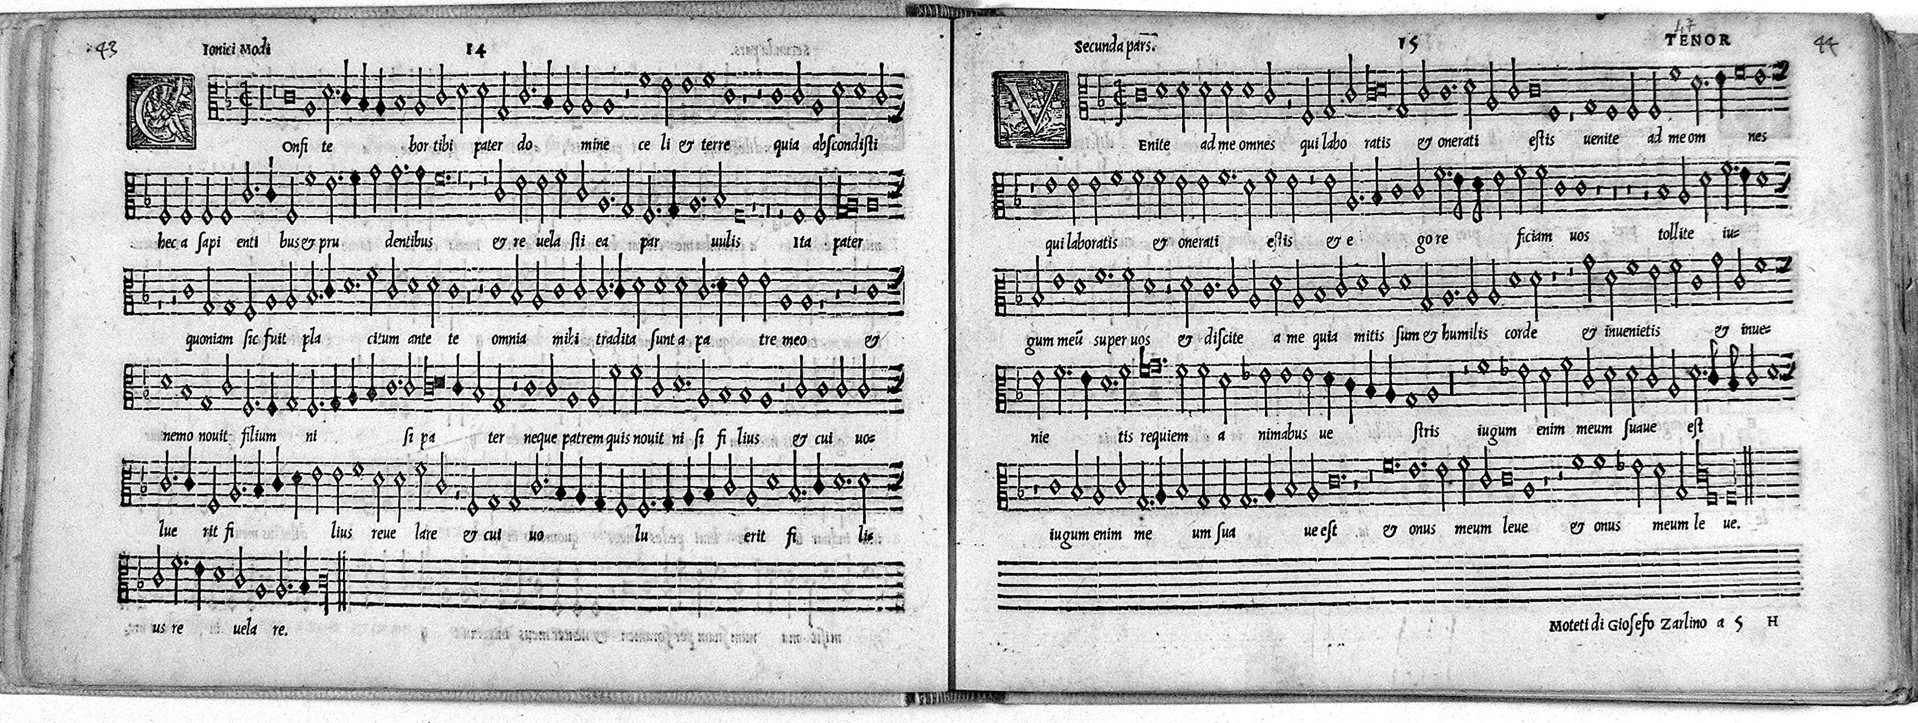 43 Ionici Modi 14
C Onfi te bor tibi pater do mine ce li & terre quia abſcondiſti
hec a ſapi enti bus & pru dentibus & re uela ſti ea par uulis Ita pater
quoniam ſic fuit pla citum ante te omnia mihi tradita ſunt a pa tre meo &
nemo nouit filium ni ſi pa ter neque patrem quis nouit ni ſi fi lius & cui uo=
lue rit fi lius reue lare & cui uo lu erit fi li=
us re uela re.
Secunda pars. 15 TENOR 44
47
V Enite ad me omnes qui labo ratis & onerati eſtis uenite ad me om nes
qui laboratis & onerati eſtis & e go re ficiam uos tollite iu=
gum meū super uos & diſcite a me quia mitis ſum & humilis corde & inuenietis & inue=
nie tis requiem a nimabus ue ſtris iugum enim meum ſuaue eſt
iugum enim me um ſua ue eſt & onus meum leue & onus meum le ue.
Moteti di Gioſefo Zarlino a 5 H